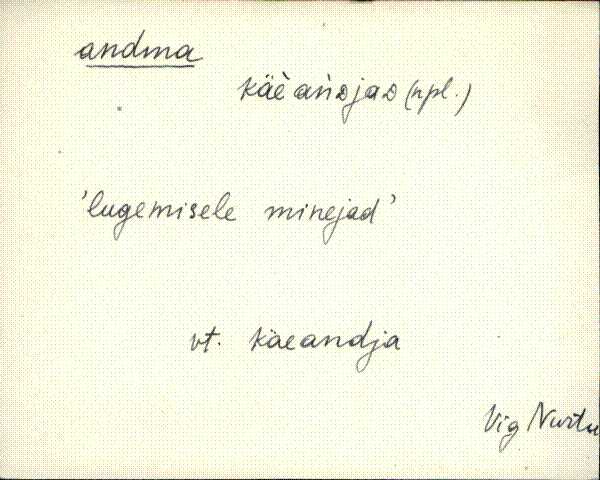 andma
käèaǹᴅjaᴅ (npl.)
'lugemisele minejad'
vt. käeandja
Vig Nurtu